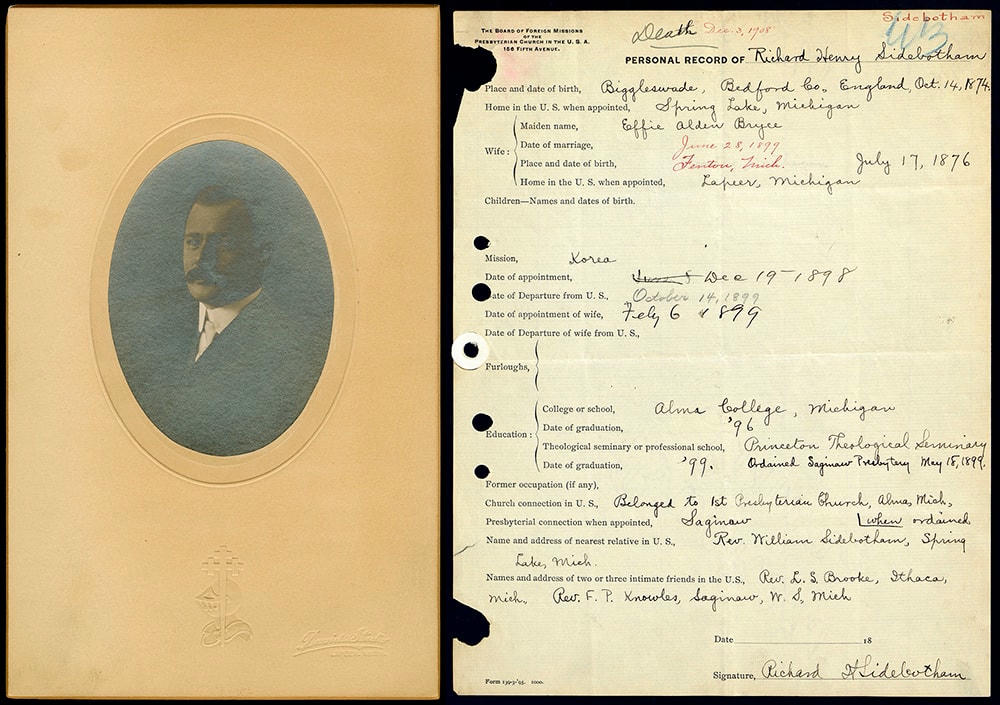 Sidebotham
THE BOARD OF FOREIGN MISSIONS
OF THE
PRESBYTERIAN CHURCH IN THE U. S. A.
156 FIFTH AVENUE.
Death Dec. 3, 1908
PERSONAL RECORD OF Richard Henry Sidebotham
Place and date of birth, Biggleswade, Bedford Co., England, Oct. 14, 1874.
Home in the U. S. when appointed, Spring Lake, Michigan
Wife :
Maiden name, Effie Alden Bryce
Date of marriage, June 28, 1899
Place and date of birth, Fenton, Mich. July 17, 1876
Home in the U. S. when appointed, Lapeer, Michigan
Children—Names and dates of birth.
Mission, Korea
Date of appointment, Dec 19 - 1898
ate of Departure from U. S., October 14, 1899
Date of appointment of wife, Feby 6 1899
Date of Departure of wife from U. S.,
Furloughs,
Education :
College or school, Alma College, Michigan
Date of graduation, '96
Theological seminary or professional school, Princeton Theological Seminary
Date of graduation, '99. Ordained Saginaw Presbytery May 18, 1899.
Former occupation (if any),
Church connection in U. S., Belonged to 1st Presbyterian Church, Alma, Mich,
Presbyterial connection when appointed, Saginaw when ordained
Name and address of nearest relative in U. S., Rev. William Sidebotham, Spring
Lake, Mich.
Names and address of two or three intimate friends in the U. S., Rev. L. S. Brooke, Ithaca,
Mich., Rev. F. P. Knowles, Saginaw, W. S, Mich
Date 18
Signature, Richard H Sidebotham